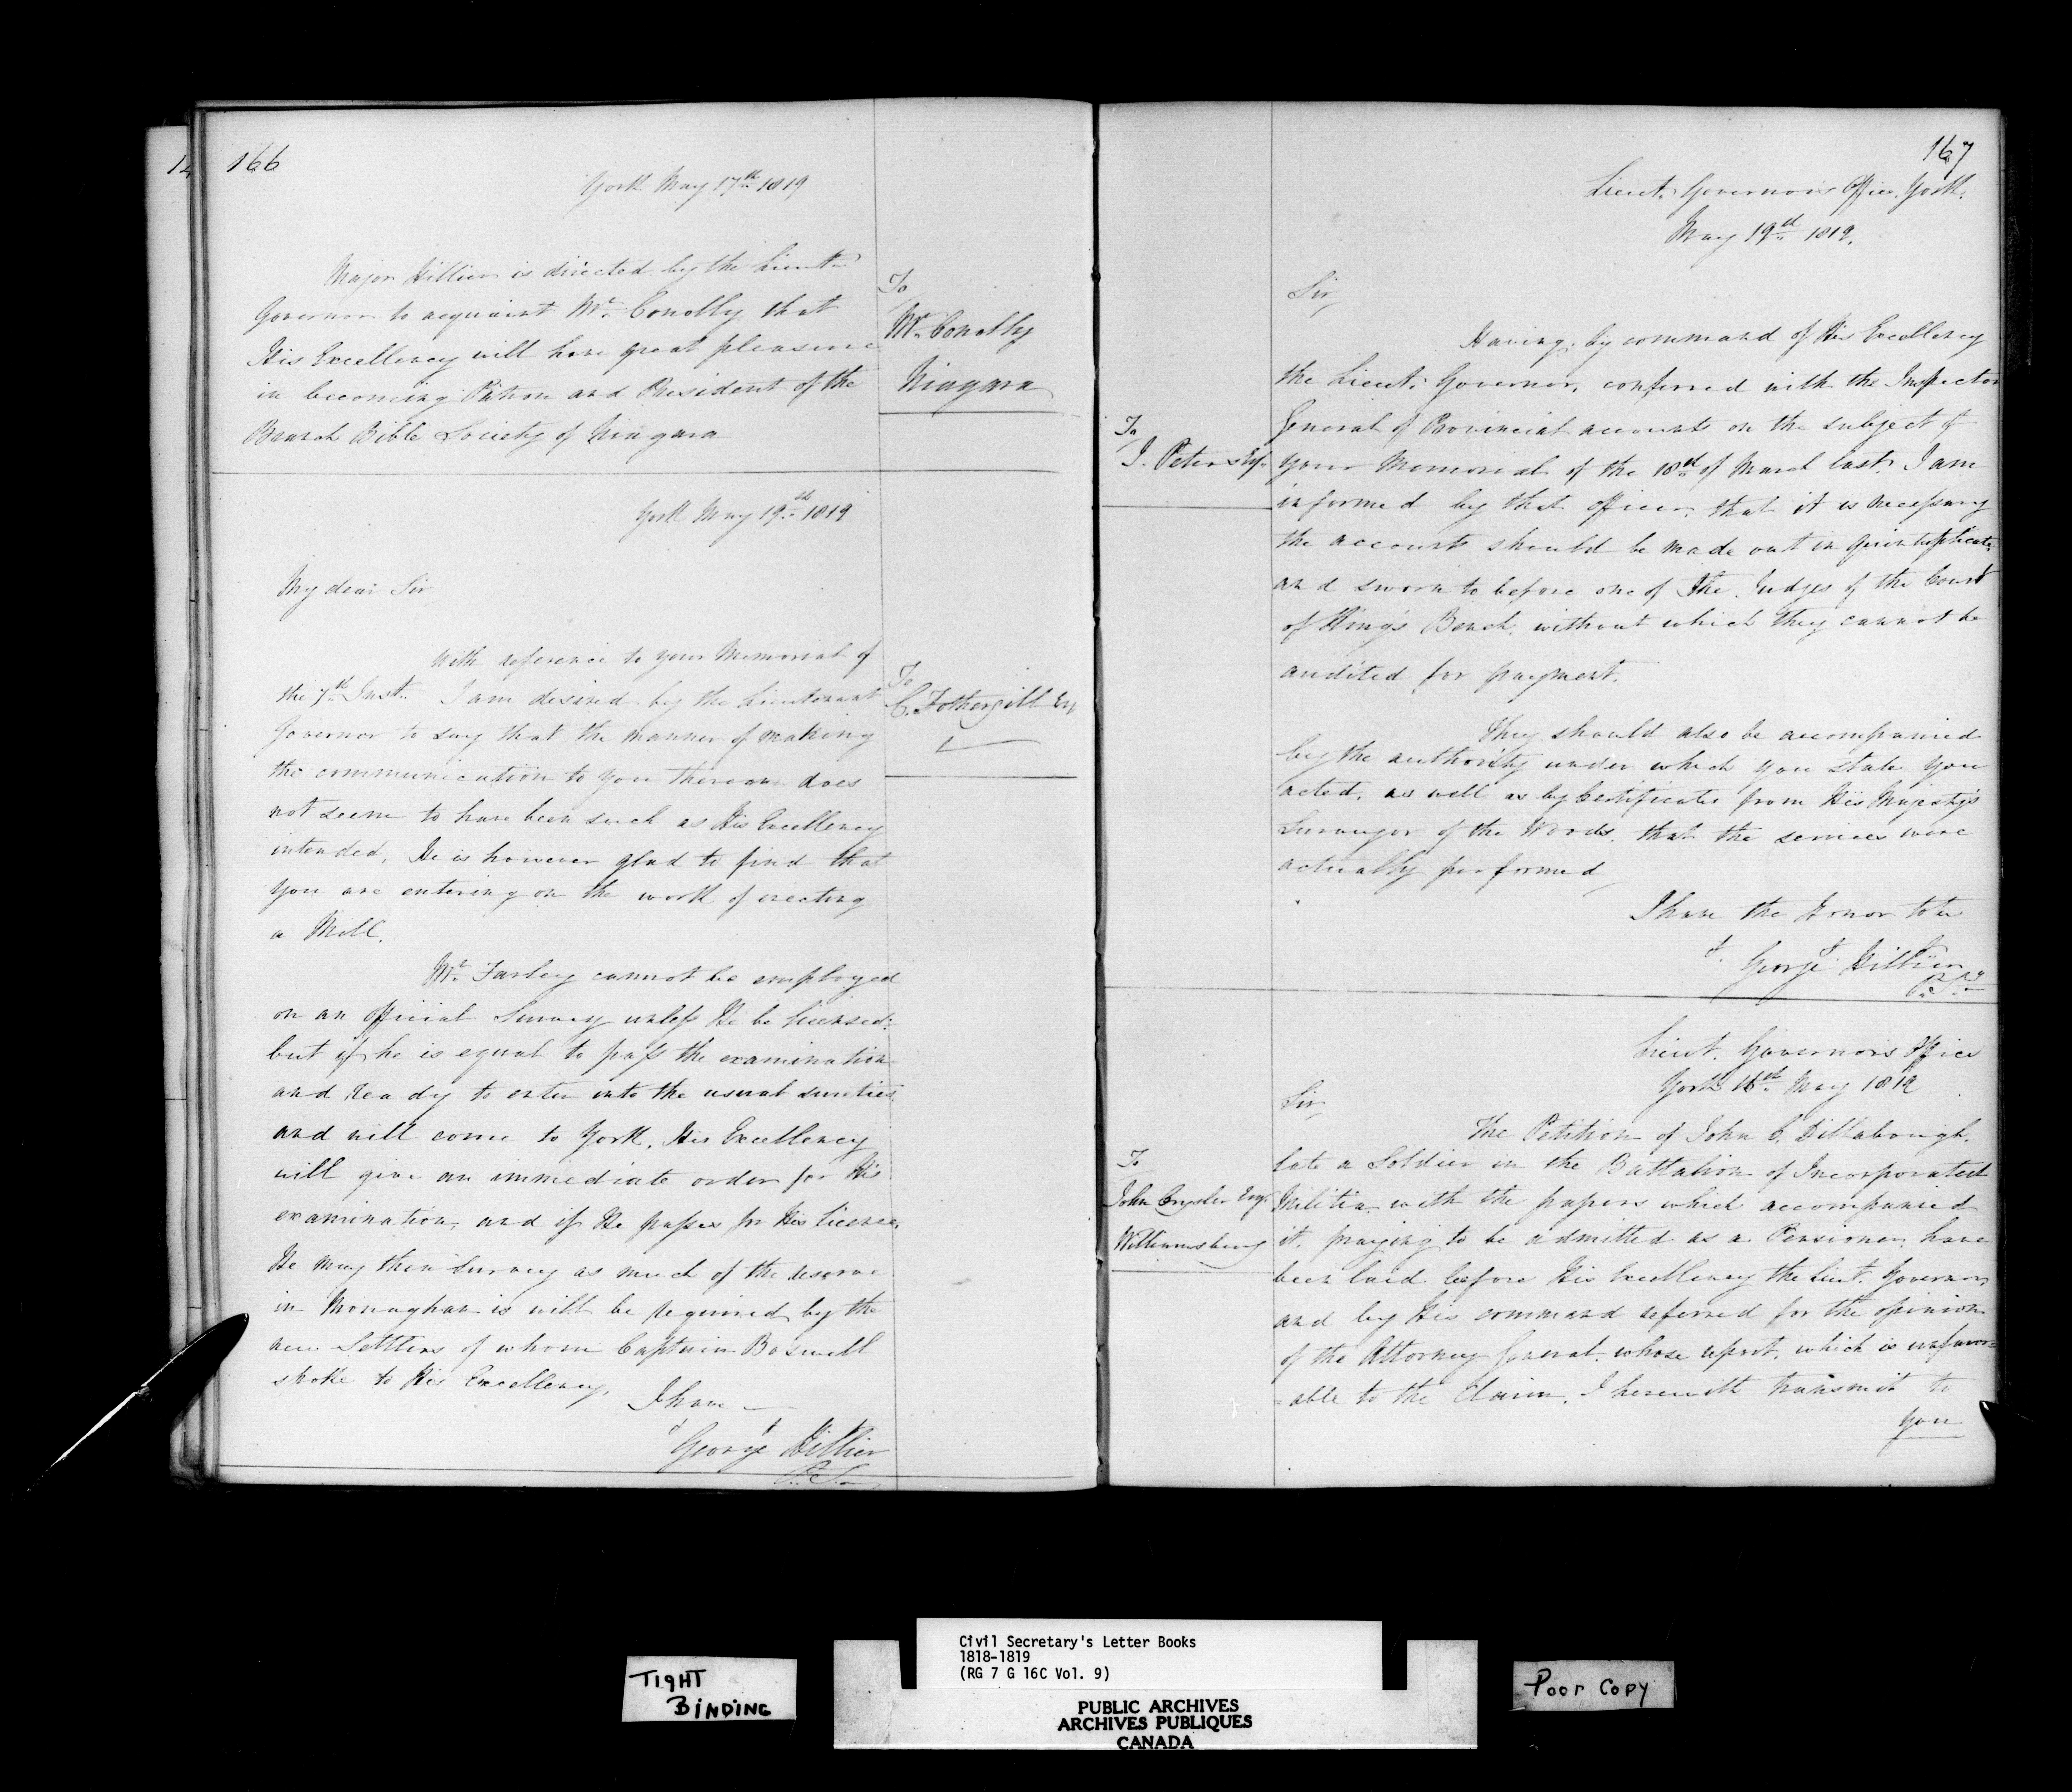 166
York May 17th 1819
Major Hillier is directed by the Lieut.
Governor to acquaint Mr. Conolly that
His Excellency will have great pleasure
in becoming Patron and President of the
Branch Bible Society of Niagara
To
Mr. Conolly
Niagara
York May 19th 1819
My dear Sir
With reference to your Memorial of
the 7th Inst. I am desired by the Lieutenant
Governor to say that the manner of making
the communication to you thereon does
not seem to have been such as His Excellency
intended. He is however glad to find that
you are entering on the work of erecting
a Mill.
Mr. Farley cannot be employed
on an official Survey unless He be licensed:
but if he is equal to pass the examination
and ready to enter into the usual sureties
and will come to York, His Excellency
will give an immediate order for His
examination, and if He passes for His license,
He may then Survey as much of the reserve
in Monaghan is will be required by the
new Settlers of whom Captain Boswell
spoke to His Excellency.
I have
George Hillier
P. S.
To
C. Fothergill Esq
167
Lieut. Governor's Office, York.
May 19th 1819.
Sir,
Having, by command of His Excellency
the Lieut. Governor, conferred with the Inspector
General of Provincial accounts on the subject of
your Memorial of the 18th of March last, I am
informed by that officer, that it is necessary
the accounts should be made out in quintuplicate,
and sworn to before one of the Judges of the Court
of King's Bench, without which they cannot be
audited for payment.
They should also be accompanied
by the authority under which you state you
acted, as well as by Certificates from His Majesty's
Surveyor of the Woods, that the services were
actually performed
I have the Honor to be
George Hillier
P. Sy
To
J. Peters Esq.
Lieut. Governor's Office
York 16th May 1819
Sir,
The Petition of John C. Dillabough,
late a Soldier in the Battalion of Incorporated
Militia, with the papers which accompanied
it, praying to be admitted as a Pensioner, have
been laid before His Excellency the Lieut. Governor,
and by His command referred for the opinion
of the Attorney General, whose report, which is unfavor=
=able to the Claim, I herewith transmit to
you
To
John Crysler Esqr.
Williamsburg
TIGHT
BINDING
Civil Secretary's Letter Books
1818-1819
(RG 7 G 16C Vol. 9)
PUBLIC ARCHIVES
ARCHIVES PUBLIQUES
CANADA
Poor Copy